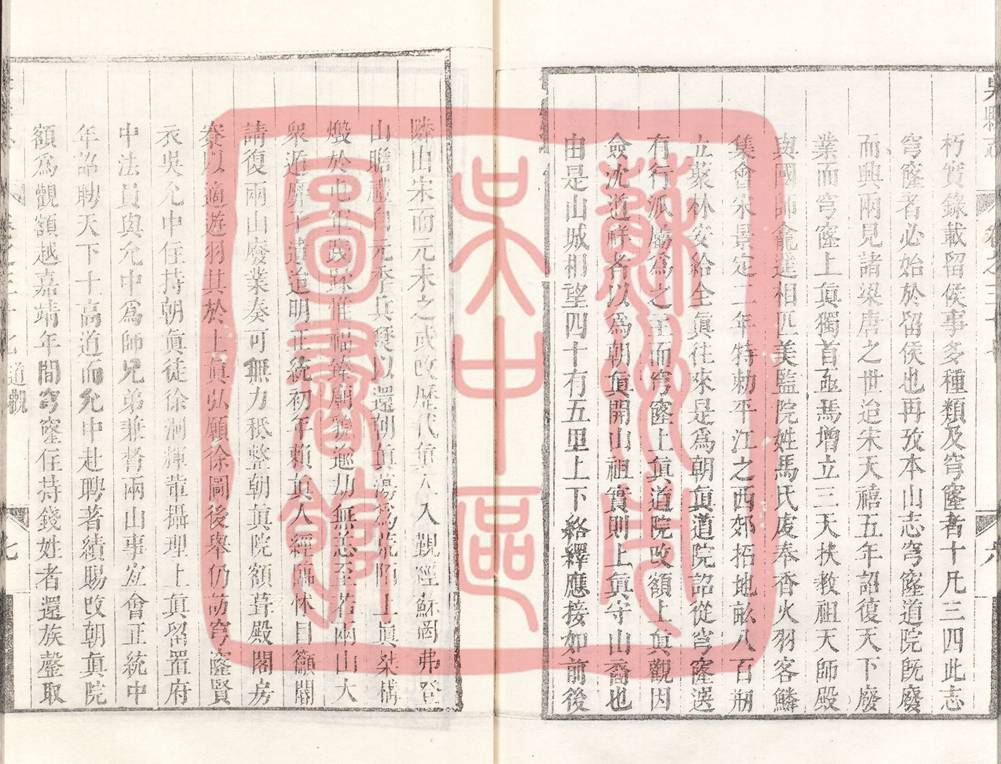 吳縣志
朽實錄載留侯事多種類及穹窿者十凡三四此志
穹窿者必始於留侯也再攷本山志穹窿道院旣廢
而興兩見諸梁唐之世迨宋天禧五年詔復天下廢
業而穹窿上眞獨首亟焉增立三天扶教祖天師殿
與國師龕進相匹美監院姓馬氏虔奉香火羽客鱗
集會宋景定二年特勅平江之西郊拓地畝八百朔
立叢林安給全眞往來是爲朝眞道院詔從穹窿選
有行派屬爲之主而穹窿上眞道院改額上眞觀因
僉沈道祥者以爲朝眞開山祖實則上眞守山裔也
由是山城相望四十有五里上下絡繹應接如前後
隣由宋而元未之或改歷代眞人入覲徑蘇罔弗登
山瞻禮元季兵燹以還朝眞蕩爲荒陌上眞桀構
燬於惟祖無恙至若兩山大
衆道明正統初年賴眞人經歸怵目籲闕
請復兩山廢業奏可無力秪整朝眞院額葺殿閣房
寮以適遊羽其於上眞弘願徐圖後舉仍訪穹窿賢
衣吳允中住持朝眞徒徐洞輝輩攝理上眞留置府
中法員與允中爲師兄弟兼督兩山事宜會正統中
年詔聘天下十高道而允中赴聘著績賜改朝眞院
額爲觀額越嘉靖年間穹窿住持錢姓者還族罄取
道觀
七
蘇州市
吳中區
圖書館